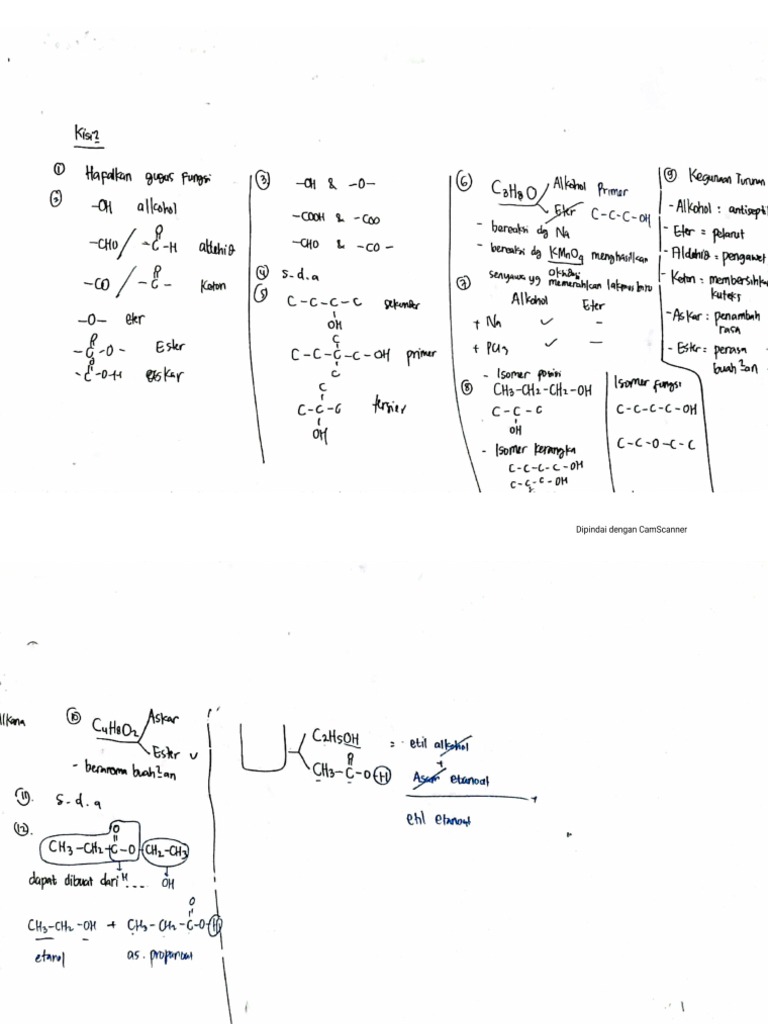 Kisi2
① Hafalkan gugus fungsi
②
-OH alkohol
-CHO / O
-C-H aldehid
-CO / O
-C- Keton
-O- eter
O
-C-O- Ester
O
-C-O-H askar
③ -OH & -O-
-COOH & -COO
-CHO & -CO-
④ s.d.a
⑤ C-C-C-C sekunder
OH
C
C-C-C-C-OH primer
C
C
C-C-C tersier
OH
⑥ C3H8O Alkohol Primer
Eter C-C-C-OH
- bereaksi dg Na
- bereaksi dg KMnO4 menghasilkan
oksidasi
senyawa yg memerahkan lakmus biru
⑦ Alkohol Eter
+ Na ✓ -
+ PCl3 ✓ -
⑧ - Isomer posisi
CH3-CH2-CH2-OH
C-C-C
OH
- Isomer kerangka
C-C-C-C-OH
C-C-C-OH
C
Isomer fungsi
C-C-C-C-OH
C-C-O-C-C
⑨ Kegunaan Turunan
- Alkohol : antisepti
- Eter = pelarut
- Aldehid = pengawet
- Keton : membersihka
kuteks
- Askar : penambah
rasa
- Ester = perasa
buah2an
Dipindai dengan CamScanner
Alkana
⑩ C4H8O2 Askar
Ester ✓
- beraroma buah2an
⑪. s.d.a
⑫.
O
CH3-CH2-C-O-CH2-CH3
dapat dibuat dari H .... OH
O
CH3-CH2-OH + CH3-CH2-C-O-H
etanol as. propanoat
C2H5OH = etil alkohol
O +
CH3-C-O-H Asam etanoat
+
etil etanoat